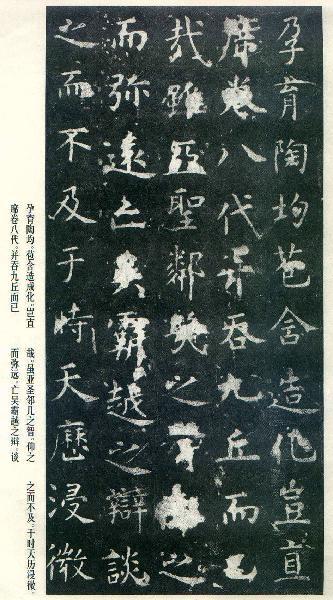 孕育陶均苞含造化豈直
席卷八代并吞九丘而已
哉雖亞聖鄰幾之智仰之
而弥遠亡吴霸越之辯談
之而不及于時天歷浸微
孕育陶均。苞含造成化。岂直
席卷八代。并吞九丘而已
哉。虽亚圣邻几之智。仰之
而弥远。亡吴霸越之辩。谈
之而不及。于时天历浸微。